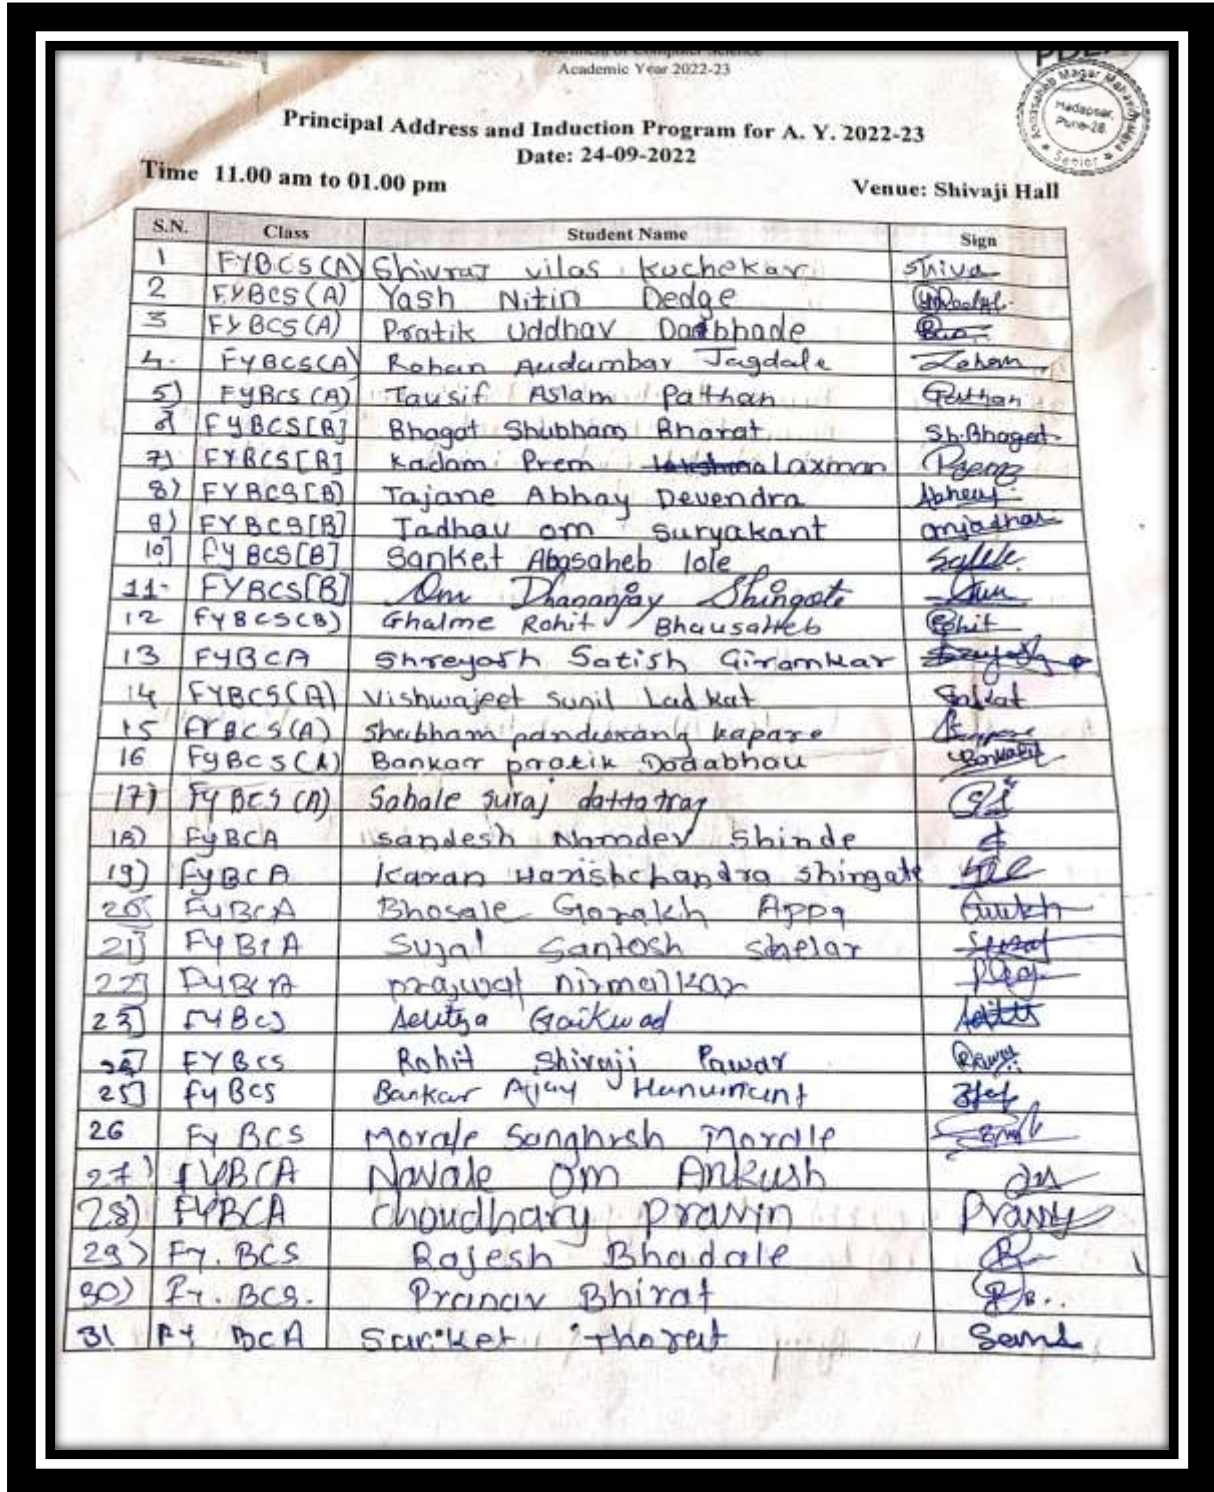 Department of Computer Science
Academic Year 2022-23
Annasaheb Magar Mahavidyalaya
Hadapsar,
Pune-28.
Senior
Principal Address and Induction Program for A. Y. 2022-23
Date: 24-09-2022
Time 11.00 am to 01.00 pm
Venue: Shivaji Hall
S.N. Class Student Name Sign
1 FYBCS(A) Shivraj vilas Kuchekar Shiva
2 FYBCS(A) Yash Nitin Dedge
3 FYBCS(A) Pratik Uddhav Dabhade
4. FYBCS(A) Rohan Audumbar Jagdale Rohan
5) FYBCS(A) Tausif Aslam Pathan Pathan
6) FYBCS[B] Bhagat Shubham Bharat Sh.Bhagat
7) FYBCS[B] Kadam Prem Laxman Prem
8) FYBCS[B] Tajane Abhay Devendra Abhay
9) FYBCS[B] Jadhav om Suryakant omjadhav
10] FyBCS[B] Sanket Abasaheb lole
11. FYBCS[B] Om Dhananjay Shingote
12 FYBCS(B) Ghalme Rohit Bhausaheb Rohit
13 FYBCA Shreyash Satish Giramkar
14 FYBCS(A) Vishwajeet Sunil Ladkat Ladkat
15 FYBCS(A) Shubham pandurang kapare
16 FyBCS(A) Bankar pratik Dadabhau
17) FyBCS(A) Sabale suraj dattatray
18) FyBCA sandesh Namdev Shinde
19) FyBCA Karan Harishchandra shingate
20] FyBCA Bhosale Gorakh Appa
21] FyBCA Sujal Santosh shelar
22] FyBCA prajwal nirmalkar
23] FYBCS Aditya Gaikwad
24] FYBCS Rohit Shivaji Pawar
25] FyBCS Bankar Ajay Hanumant
26 Fy BCS Morale Sangharsh Morale
27) FYBCA Navale om Ankush
28) FYBCA Choudhary Pravin
29) Fy. BCS Rajesh Bhadale
30) Fy. BCS. Pranav Bhirat
31 FY BCA Sanket Thorat